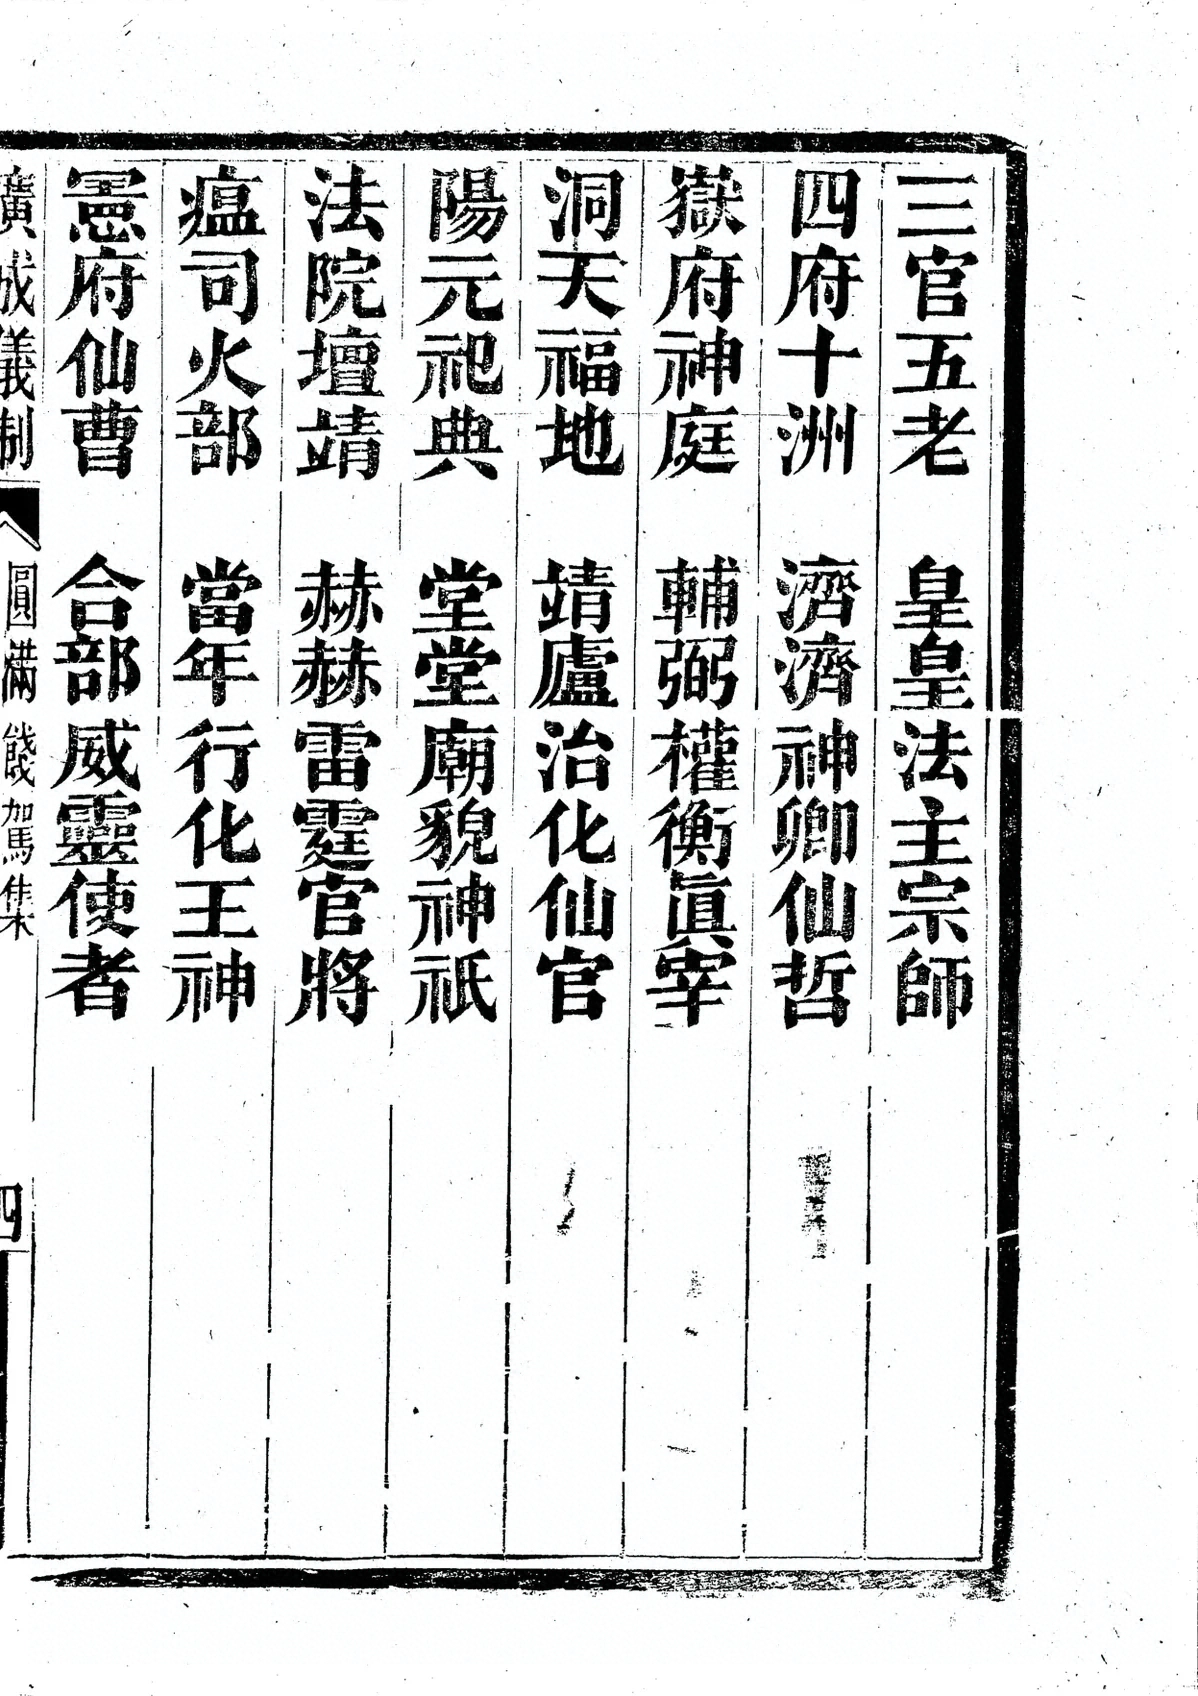 三官五老　皇皇法主宗師
四府十洲　濟濟神卿仙哲
嶽府神庭　輔弼權衡眞宰
洞天福地　靖廬治化仙官
陽元祀典　堂堂廟貌神祇
法院壇靖　赫赫雷霆官將
瘟司火部　當年行化王神
憲府仙曹　合部威靈使者
廣成儀制　圓滿餞駕集　四